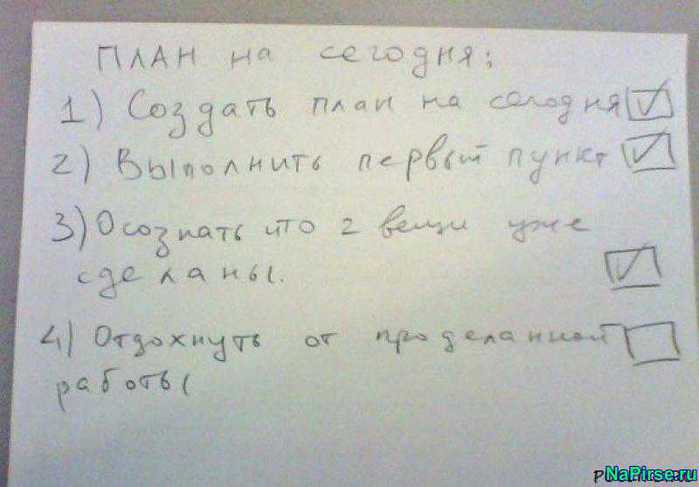 ПЛАН на сегодня:
1) Создать план на сегодня
2) Выполнить первый пункт
3) Осознать что 2 вещи уже
сделаны.
4) Отдохнуть от проделанной
работы
NaPirse.ru